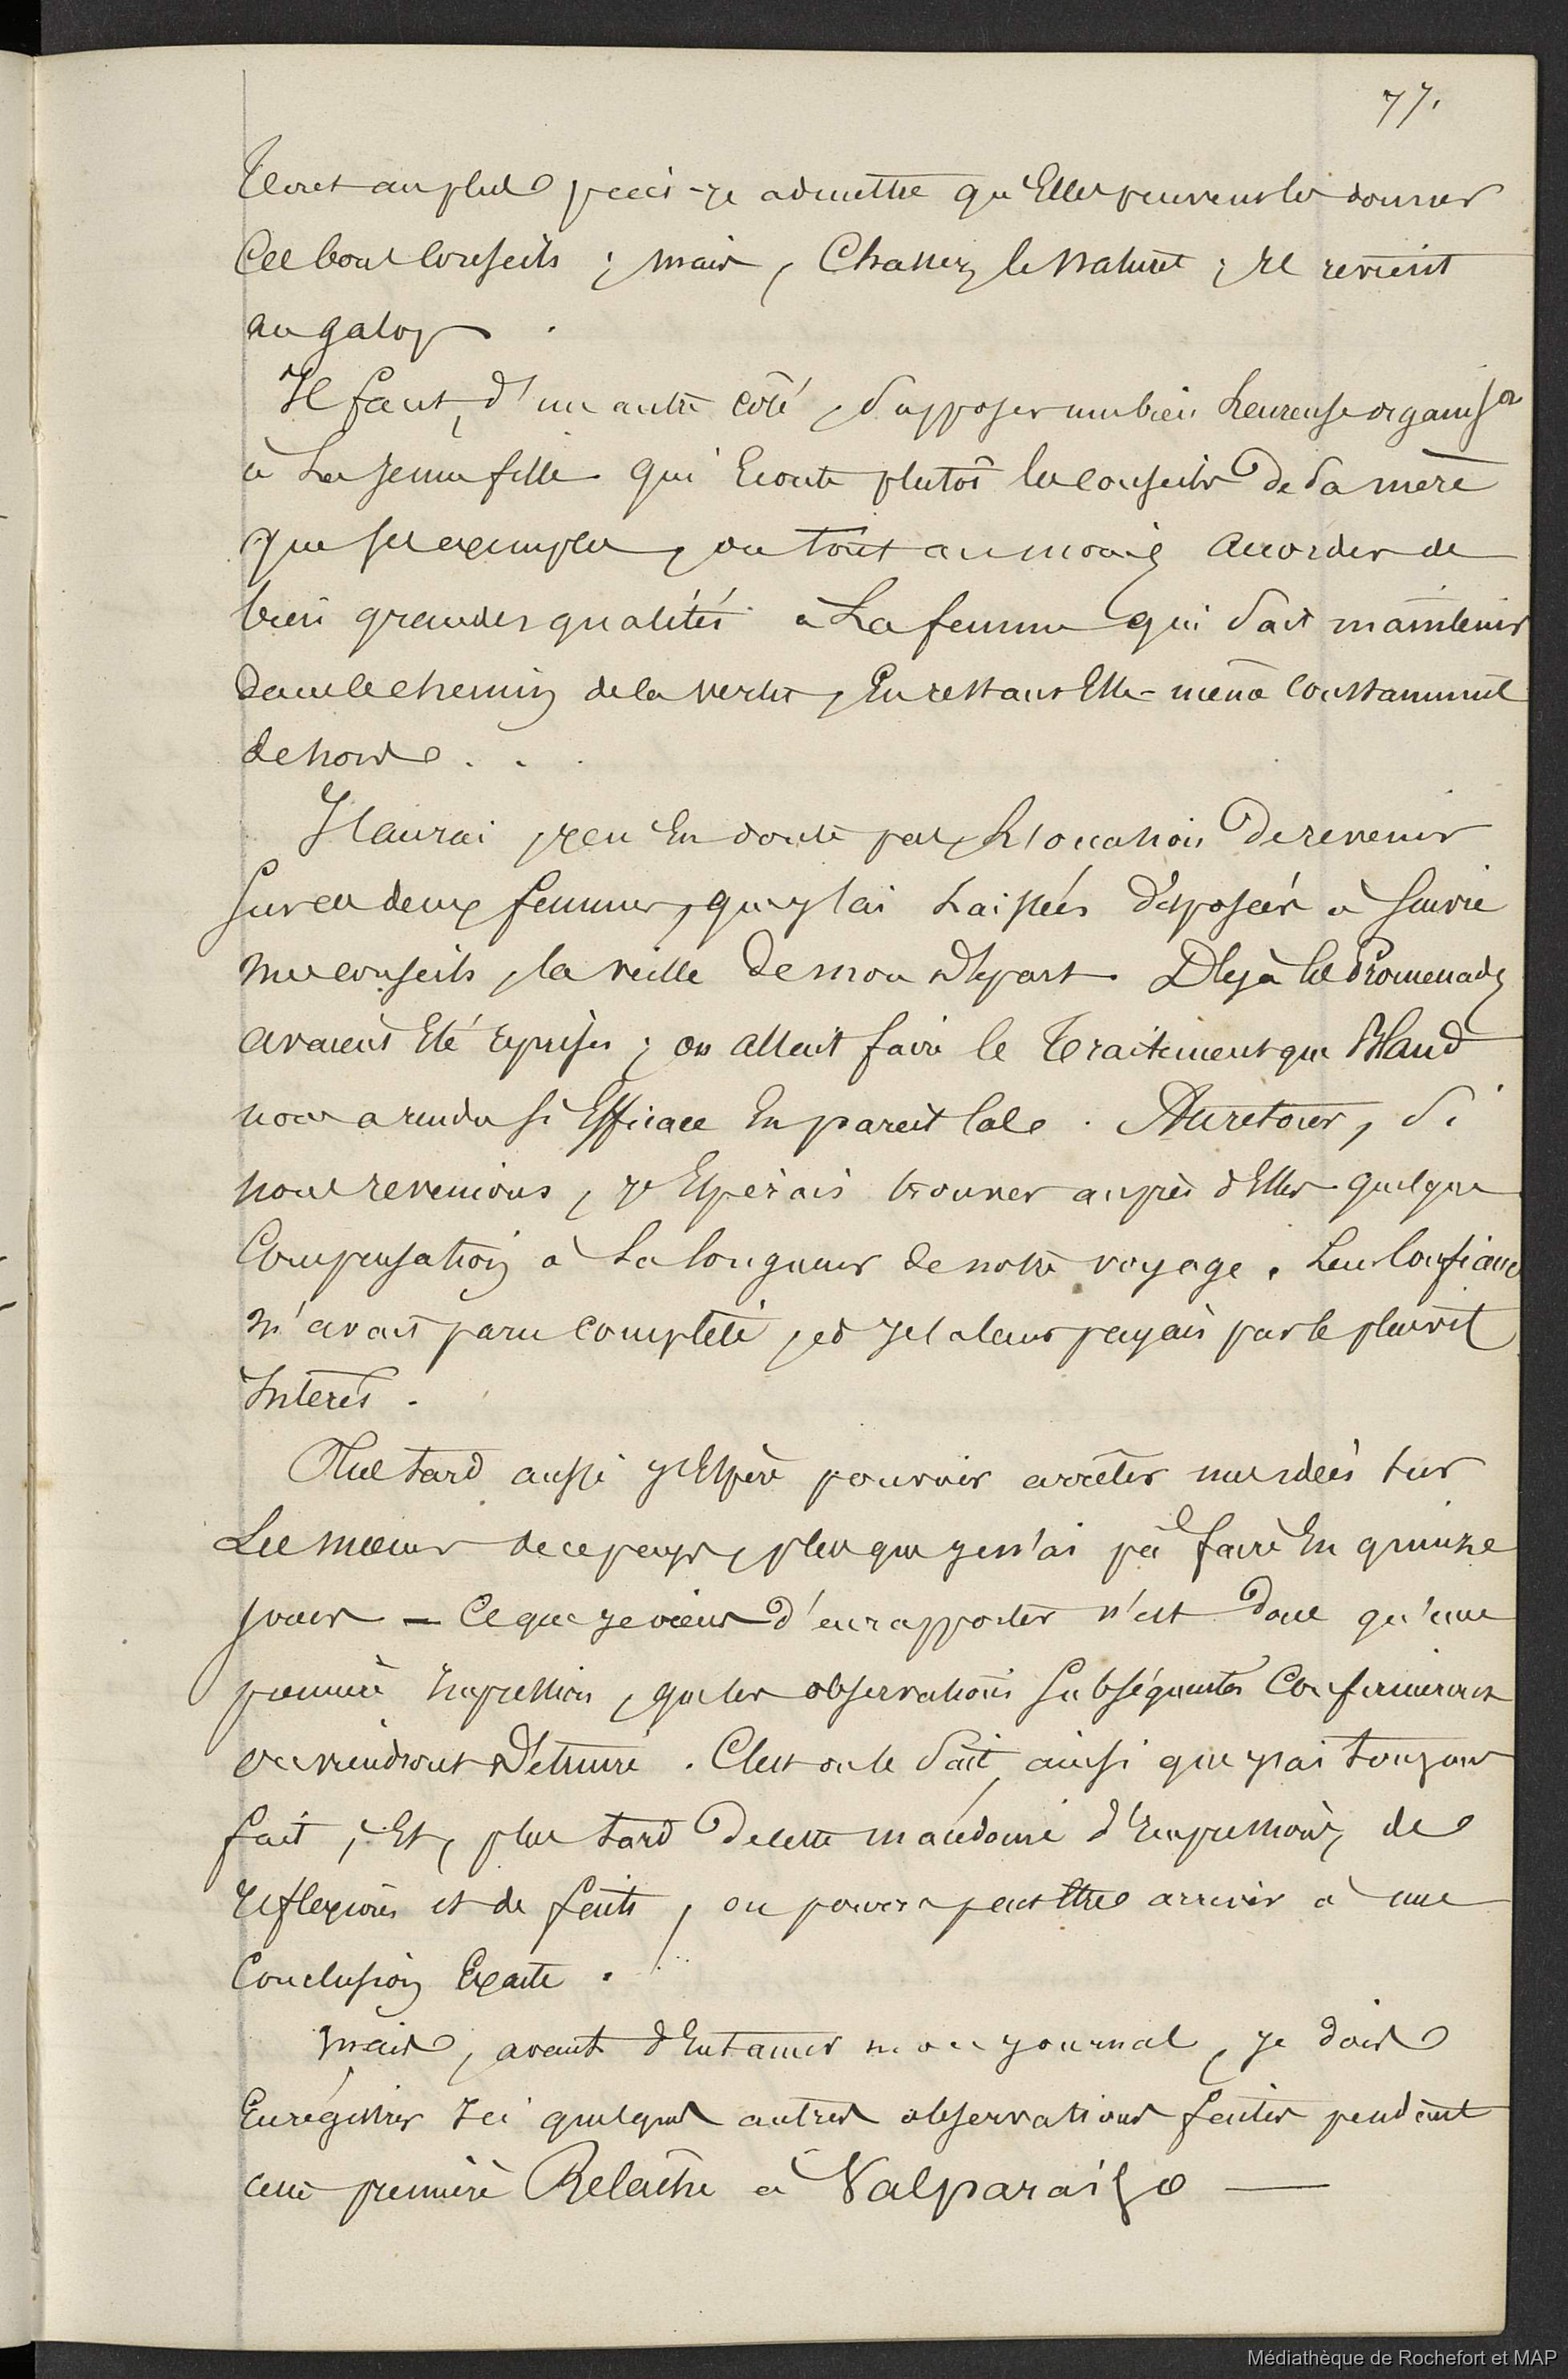 77.
Tout au plus puis-je admettre qu'Elles peuvent les donner
Ces bons Conseils ; mais, Chassez le Naturel ; Il revient
au galop.
Il faut, d'un autre côté, Supposer une bien heureuse organis.on
à La jeune fille qui Ecoute plutôt les Conseils De Sa mère
que ses exemples, ou tout au moins accorder de
bien grandes qualités à La femme qui Sait maintenir
Dans le chemin de la vertu, En restant Elle-même Constamment
dehors...
J'aurai, je n'En doute pas, L'occasion De revenir
Sur ces deux femmes, que j'ai Laissées disposées à Suivre
mes conseils, la veille De mon Départ. Déjà les Promenades
avaient Eté reprises ; on allait faire le Traitement que Bland
nous a rendu si Efficace En pareil Cas. Au retour, Si
nous revenions, j'Espérais trouver auprès d'Elles quelque
Compensation à La longueur de notre voyage. Leur Confiance
m'avait paru Complète, et je la leur payais par le plus vif
Intérêt.
Plus tard aussi j'Espère pouvoir arrêter mes idées sur
Les mœurs de ce pays, plus que je n'ai pû faire En quinze
jours — Ce que je viens d'en rapporter n'est Donc qu'une
première Impression, que les observations Subséquentes Confirmeront
ou viendront Détruire. C'est on le Sait, ainsi que j'ai toujours
fait ; Et, plus tard De cette macédoine d'Impressions, de
réflexions et de faits, on pourra peut Etre arriver à une
Conclusion Exacte.
Mais, avant d'Entamer mon journal, je dois
Enrégistrer Ici quelques autres observations faites pendant
cette première Relâche à Valparaiso —
Médiathèque de Rochefort et MAP